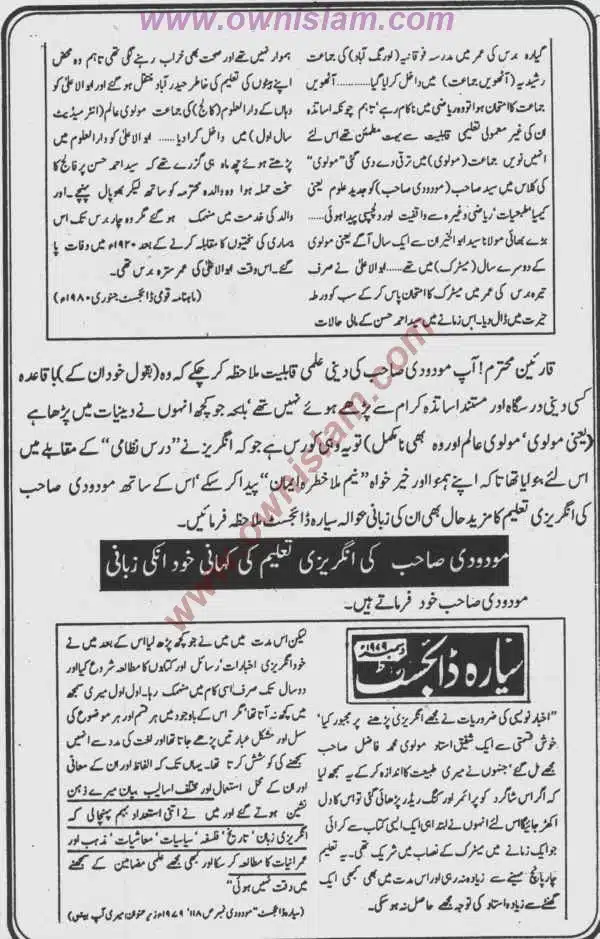 www.ownislam.com
گیارہ برس کی عمر میں مدرسہ فوقانیہ (اورنگ آباد) کی جماعت
رشدیہ (آٹھویں جماعت) میں داخل کرایا گیا ........ آٹھویں
جماعت کا امتحان ہوا تو وہ ریاضی میں ناکام رہے تاہم چونکہ اساتذہ
ان کی غیر معمولی تعلیمی قابلیت سے بہت مطمئن تھے اس لئے
انہیں نویں جماعت (مولوی) میں ترقی دے دی گئی ”مولوی“
کی کلاس میں سید صاحب (مودودی صاحب) کو جدید علوم یعنی
کیمیا طبیعیات‘ ریاضی وغیرہ سے واقفیت اور دلچسپی پیدا ہوئی ......
بڑے بھائی مولانا سید ابوالخیر ان سے ایک سال آگے یعنی مولوی
کے دوسرے سال (میٹرک) میں تھے ...... ابوالاعلیٰ نے صرف
تیرہ برس کی عمر میں میٹرک کا امتحان پاس کر کے سب کو ورطہ
حیرت میں ڈال دیا۔ اس زمانے میں سید احمد حسن کے مالی حالات
ہموار نہیں تھے اور صحت بھی خراب رہنے لگی تھی تاہم وہ محض
اپنے بیٹوں کی تعلیم کی خاطر حیدر آباد منتقل ہو گئے اور ابوالاعلیٰ کو
وہاں کے دارالعلوم (کالج) کی جماعت مولوی عالم (انٹر میڈیٹ
سال اول) میں داخل کرا دیا ...... ابوالاعلیٰ کو دارالعلوم میں
پڑھتے ہوئے چھ ماہ ہی گزرے تھے کہ سید احمد حسن پر فالج کا
سخت حملہ ہوا وہ والدہ محترمہ کو ساتھ لیکر بھوپال پہنچے۔ اور
والد کی خدمت میں منہمک ہو گئے مگر وہ چار برس تک اس
بیماری کی سختیوں کا مقابلہ کرنے کے بعد ۱۹۲۰ء میں وفات پا
گئے۔ اس وقت ابوالاعلیٰ کی عمر سترہ برس تھی۔
(ماہنامہ قومی ڈائجسٹ جنوری ۱۹۸۰ء)
قارئین محترم! آپ مودودی صاحب کی دینی علمی قابلیت ملاحظہ کر چکے کہ وہ (بقول خود ان کے) باقاعدہ
کسی دینی درسگاہ اور مستند اساتذہ کرام سے پڑھے ہوئے نہیں تھے‘ بلکہ جو کچھ انہوں نے دینیات میں پڑھا ہے
(یعنی مولوی‘ مولوی عالم اور وہ بھی نامکمل) تو یہ وہی کورس ہے جو کہ انگریز نے ”درس نظامی“ کے مقابلے میں
اس لئے بنوایا تھا تاکہ اپنے ہمنوا اور خیر خواہ ”نیم ملا خطرہ ایمان“ پیدا کر سکے‘ اس کے ساتھ مودودی صاحب
کی انگریزی تعلیم کا مزید حال بھی ان کی زبانی بحوالہ سیارہ ڈائجسٹ ملاحظہ فرمائیں۔
مودودی صاحب کی انگریزی تعلیم کی کہانی خود انکی زبانی
مودودی صاحب خود فرماتے ہیں۔
سیارہ ڈائجسٹ دسمبر ۱۹۷۹ء
”اخبار نویسی کی ضروریات نے مجھے انگریزی پڑھنے پر مجبور کیا‘
خوش قسمتی سے ایک شفیق استاد مولوی محمد فاضل صاحب
مجھے مل گئے‘ جنہوں نے میری طبیعت کا اندازہ کر کے یہ سمجھ لیا
کہ اگر اس شاگرد کو پرائمر اور کنگ ریڈر پڑھائی گئی تو اس کا دل
اکھڑ جائیگا اس لئے انہوں نے ابتدا ہی ایک ایسی کتاب سے کرائی
جو ایک زمانے میں میٹرک کے نصاب میں شریک تھی۔ یہ تعلیم
چار پانچ مہینے سے زیادہ نہ رہی اور اس مدت میں بھی کبھی ایک
گھنٹے سے زیادہ استاد کی توجہ مجھے حاصل نہ ہو سکی۔
لیکن اس مدت میں میں نے جو کچھ پڑھ لیا اس کے بعد میں نے
خود انگریزی اخبارات‘ رسائل اور کتابوں کا مطالعہ شروع کیا اور
دو سال تک صرف اسی کام میں منہمک رہا۔ اول اول میری سمجھ
میں کچھ نہ آتا تھا‘ مگر اس کے باوجود میں ہر قسم اور ہر موضوع کی
سہل اور مشکل عبارتیں پڑھے جاتا تھا اور لغت کی مدد سے انہیں
سمجھنے کی کوشش کرتا تھا۔ یہاں تک کہ الفاظ اور ان کے معانی
اور ان کے محل استعمال اور مختلف اسالیب بیان میرے ذہن
نشین ہوتے گئے اور میں نے اتنی استعداد بہم پہنچا لی کہ
انگریزی زبان‘ تاریخ‘ فلسفہ‘ سیاسیات‘ معاشیات‘ مذہب اور
عمرانیات کا مطالعہ کر سکا اور بھی مجھے علمی مضامین کے سمجھنے
میں دقت نہیں ہوئی“
(سیارہ ڈائجسٹ“ مودودی نمبر ص ۱۱۸‘ ۱۹۷۹ء زیر عنوان میری آپ بیتی)
www.ownislam.com
www.ownislam.com